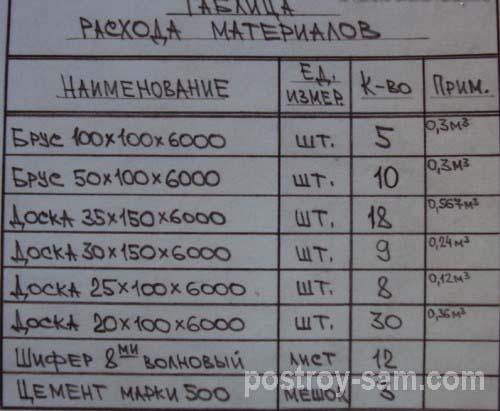 ТАБЛИЦА
РАСХОДА МАТЕРИАЛОВ
НАИМЕНОВАНИЕ ЕД. ИЗМЕР. К-ВО ПРИМ.
БРУС 100х100х6000 ШТ. 5 0,3м³
БРУС 50х100х6000 ШТ. 10 0,3м³
ДОСКА 35х150х6000 ШТ. 18 0,567м³
ДОСКА 30х150х6000 ШТ. 9 0,24м³
ДОСКА 25х100х6000 ШТ. 8 0,12м³
ДОСКА 20х100х6000 ШТ. 30 0,36м³
ШИФЕР 8МИ ВОЛНОВЫЙ ЛИСТ 12
ЦЕМЕНТ МАРКИ 500 МЕШОК
postroy-sam.com